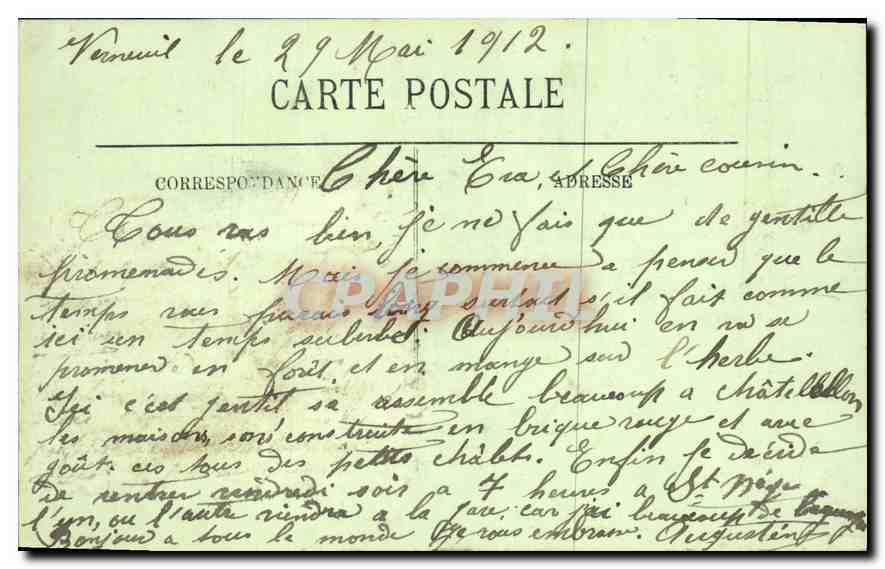 Verneuil le 29 Mai 1912.
CARTE POSTALE
CORRESPONDANCE
ADRESSE
Chère Eva, et Chère cousin.
Tous vas bien, je ne fais que de gentille
promenades. Mais je commence a penser que le
temps vous parais long surtout s'il fait comme
ici un temps superbe. Aujourd'hui en va se
promener en forêt et en mange sur l'herbe.
Ici c'est gentil sa assemble beaucoup a châtelaillon
les maisons sont construite en brique rouge et avec
goût ces tous des petits châlets. Enfin je décide
de rentrer vendredi soir a 7 heures a St
l'un, ou l'autre viendra a la gare car j'ai beaucoup de
Bonjour a tous le monde Je vous embrasse. Augustine
CPAPHIL